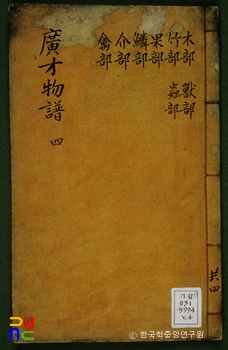 木部 獸部
竹部 蟲部
果部
鱗部
介部
禽部
廣才物譜 四
共四
가람
031
Y994
v.4
ⓒ 한국학중앙연구원